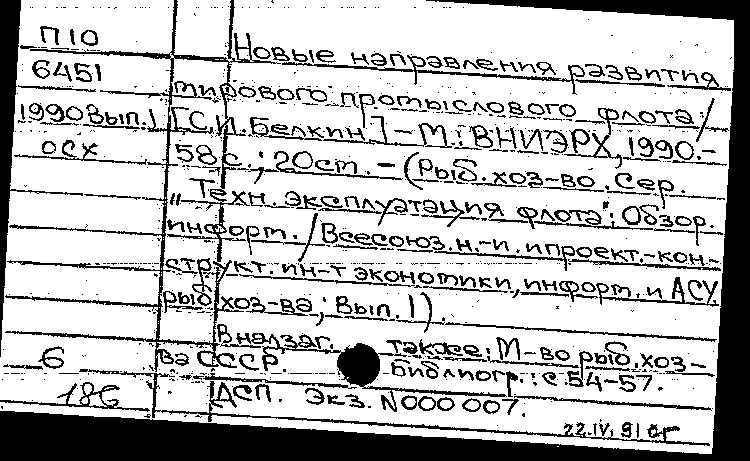 П10
Новые направления развития
6451
мирового промыслового флота /
1990 Вып. 1
[С.И. Белкин]. – М.: ВНИЭРХ, 1990. –
ОСХ
58 с.; 20 см. – (Рыб. хоз-во. Сер.
„Техн. эксплуатация флота": Обзор.
информ. / Всесоюз. н.-и. и проект.-кон-
структ. ин-т экономики, информ. и АСУ
рыб. хоз-ва; Вып. 1).
В надзаг. также: М-во рыб. хоз-
6
ва СССР. Библиогр.: с 54-57.
186
ДСП. Экз. N000 007.
22.IV.91